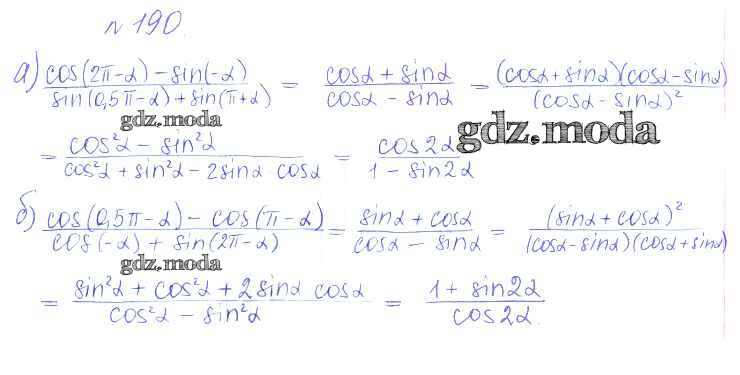 № 190.
а) cos(2π-α) - sin(-α) / sin(0,5π-α) + sin(π+α) = cosα + sinα / cosα - sinα = (cosα + sinα)(cosα - sinα) / (cosα - sinα)²
gdz.moda
gdz.moda
= cos²α - sin²α / cos²α + sin²α - 2sinα cosα = cos2α / 1 - sin2α
б) cos(0,5π-α) - cos(π-α) / cos(-α) + sin(2π-α) = sinα + cosα / cosα - sinα = (sinα + cosα)² / (cosα - sinα)(cosα + sinα)
gdz.moda
= sin²α + cos²α + 2sinα cosα / cos²α - sin²α = 1 + sin2α / cos2α.